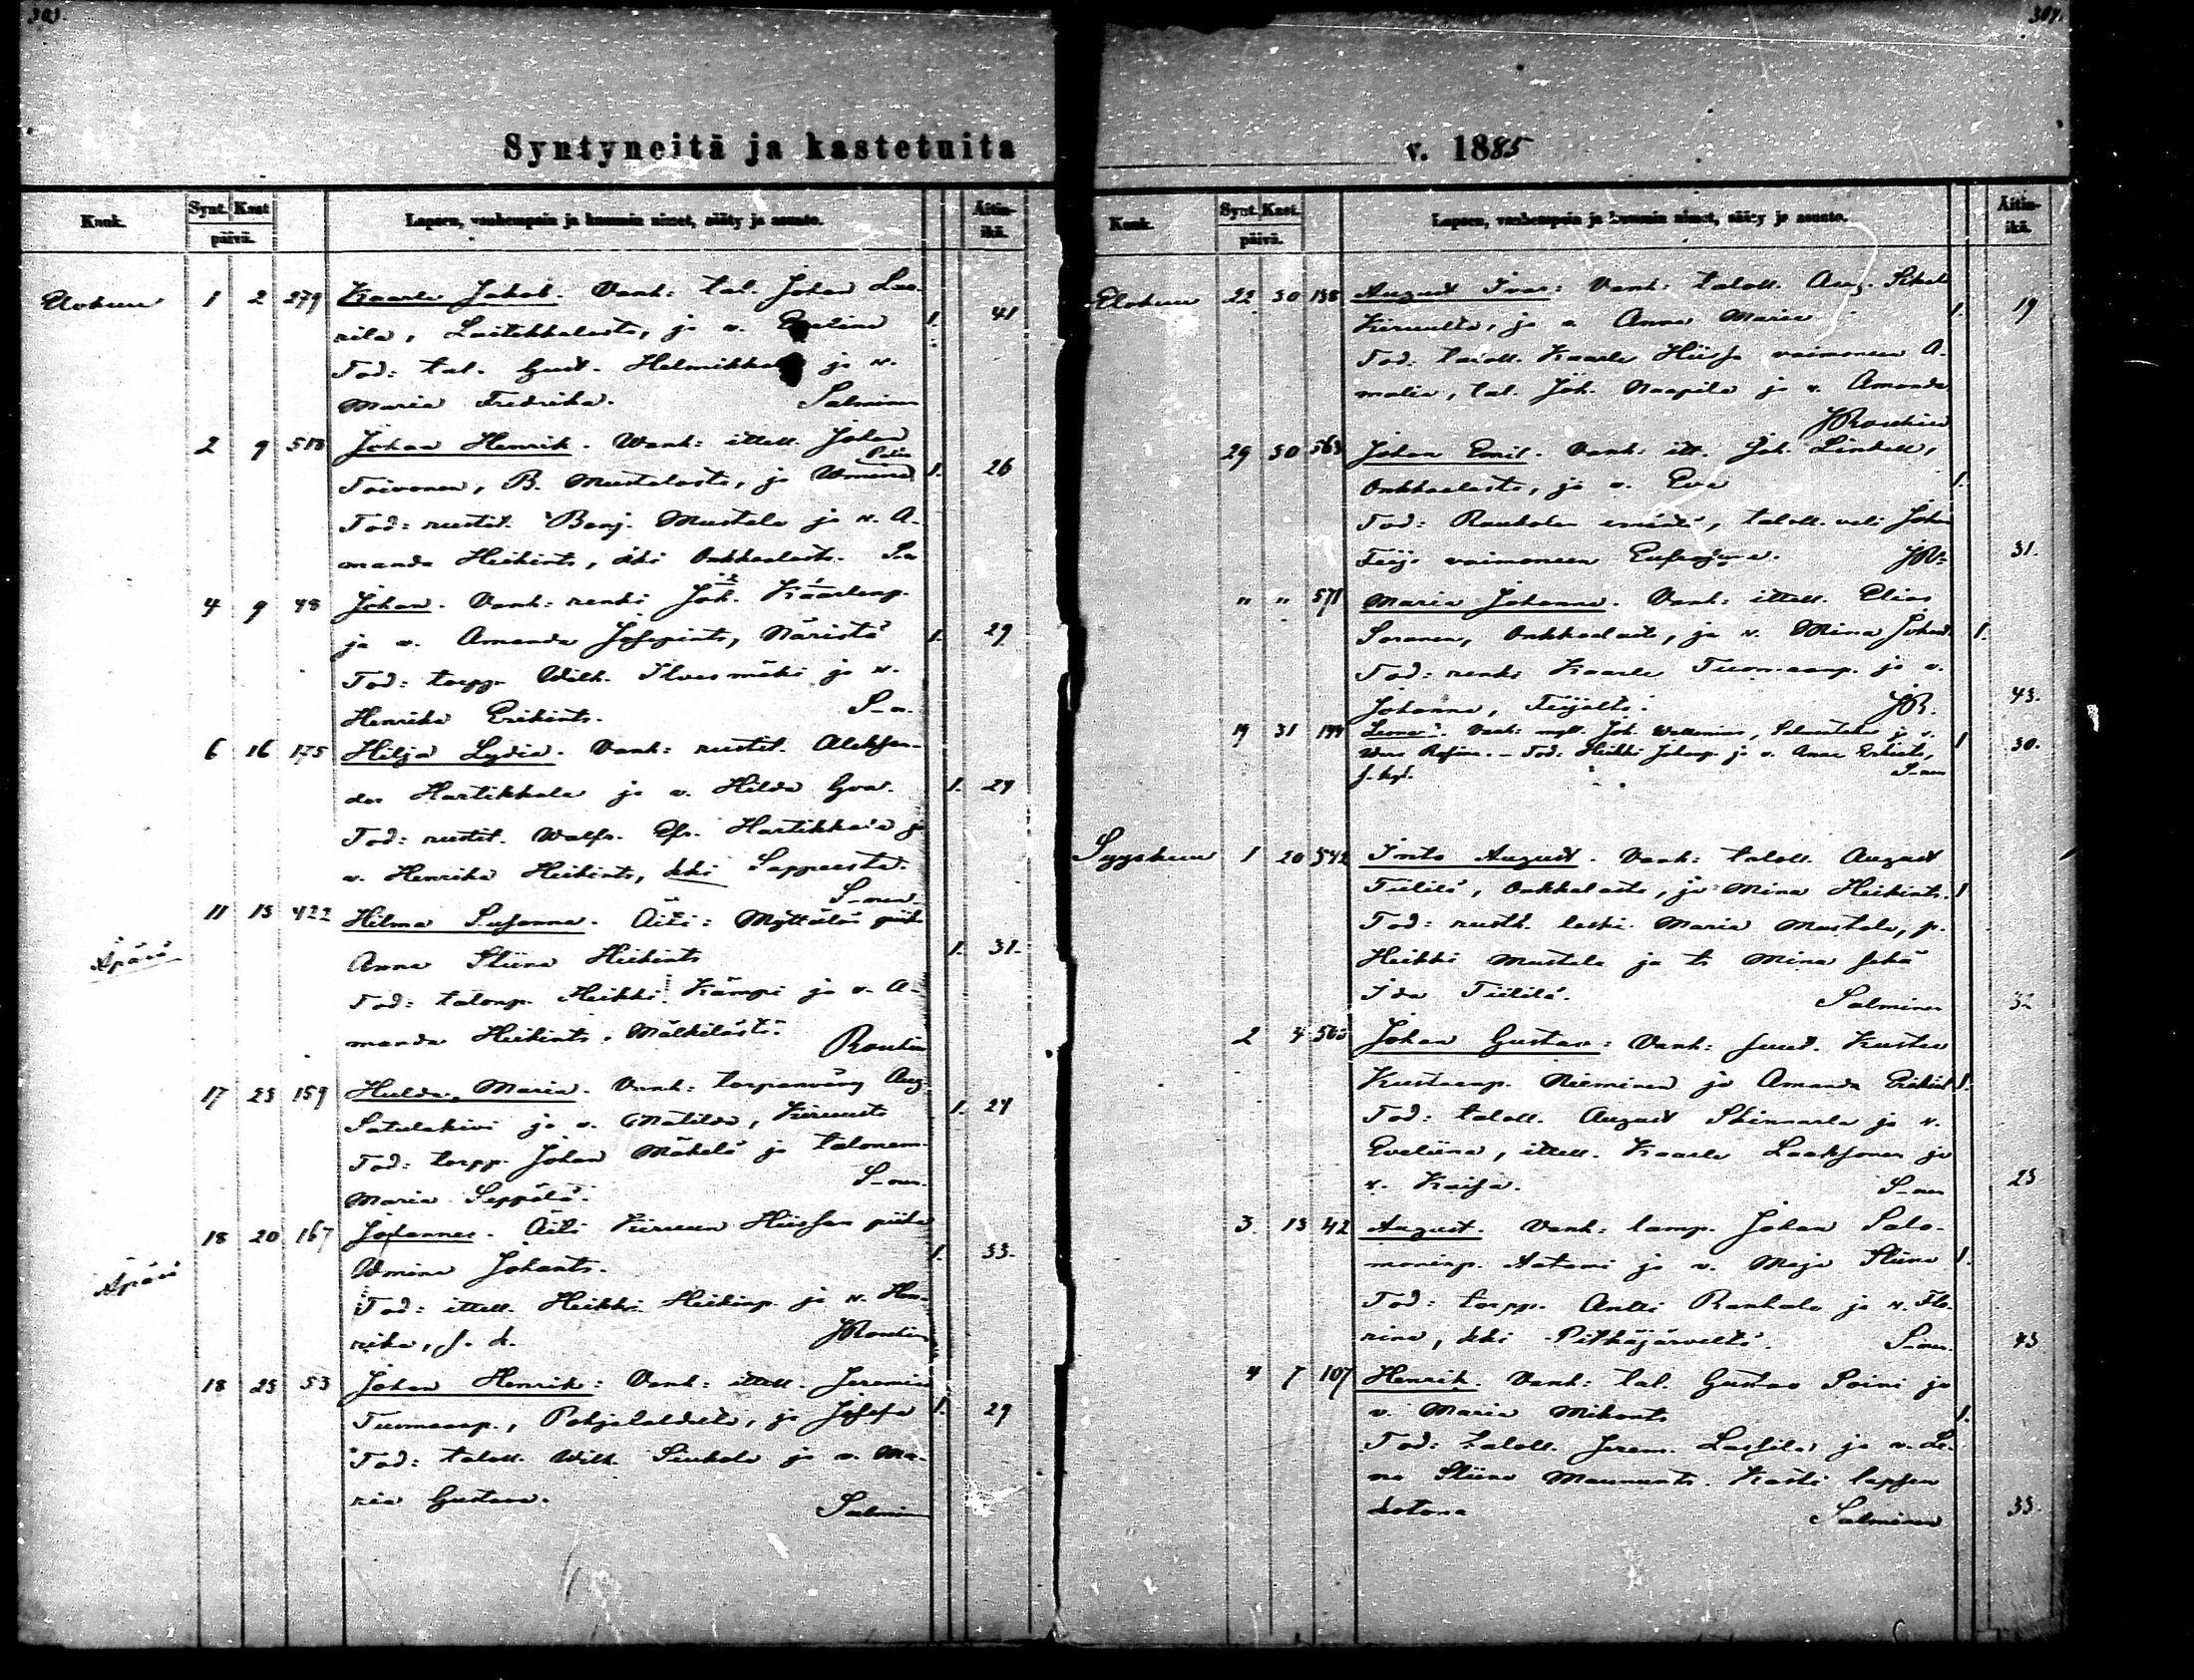 Syntyneitä ja kastetuita
Kuuk. Synt. Kast. päivä. Lapsen, vanhempain ja kummin nimet, sääty ja asunto. Äitin ikä.
Elokuu 1 2 279 Kaarle Jakob. Vanh: tal. Johan Lau-
rila, Laitikkalasta, ja v. Evelina 1. 41
Tod: tal. Gust. Helmikkala ja v.
Maria Fredrika. Salminen
2 9 518 Johan Henrik. Vanh: ittell. Johan
Toivonen, B. Mustalasta, ja Vmina 1. 26
Tod: rustit. Benj. Mustala ja v. A-
manda Heikints, kki Onkkaalasta.
4 9 48 Johan. Vanh: renki Joh. Kaarlenp.
ja v. Amanda Josepints, Näristä 1. 29
Tod: torpp. Wilh. Ilvesmäki ja v.
Henrika Erikints. S-n.
6 16 175 Hilja Lydia. Vanh: rustit. Aleksan-
der Hartikkala ja v. Hilda Gva. 1. 29
Tod: rustit. Walfr. Efr. Hartikkala ja
v. Henrika Heikints, kki Sappeesta.
S-nen.
11 15 422 Hilma Susanna. Äiti: Myttälän piika
Äpärä Anna Stiina Heikints 1. 31.
Tod: talonp. Heikki Kämpi ja v. A-
manda Heikints, Mälkilästä. Routin
17 23 159 Hulda Maria. Vanh: torpanväny Aug.
Satulakivi ja v. Matilda, Kirvusta 1. 24
Tod: torpp. Johan Mäkelä ja talonem.
Maria Seppälä. S-nen.
18 20 167 Johannes. Äiti Kirvuen Hiissan piika
Äpärä Vmina Johants. 1. 33.
Tod: ittell. Heikki Heikinp. ja v. Hen-
rika, s. k. JRoutin
18 23 53 Johan Henrik: Vanh: ittell. Jeremia
Tuomaanp., Pohjalahdelta, ja Josefa 1. 29
Tod: taloll. Wilh. Siukola ja v. Ma-
ria Gustava. Salmin
v. 1885
Kuuk. Synt. Kast. päivä. Lapsen, vanhempain ja kummin nimet, sääty ja asunto. Äitin ikä.
Elokuu 22 30 158 August Ivar: Vanh: taloll. Aug.
ja v. Anna Maria 1. 19
Tod: taloll. Kaarle Hiissa vaimoneen A-
malia, tal. Joh. Naapila ja v. Amanda
JRoutin
29 30 563 Johan Emil. Vanh: itt. Joh. Lindell,
Onkkaalasta, ja v. Eva 1.
Tod: Raukolan emäntä, taloll. veli Johan
Teijo vaimoneen JRn 31.
" " 571 Maria Johanna. Vanh: ittell. Elias
Soranen, Onkkaalasta, ja v. Mina Johant. 1.
Tod: renki Kaarle Tuomaanp. ja v.
Johanna, Teijolta. JR. 43.
19 31 199 Vanh: myll. Joh. Wellenius, ja v.
Tod: Heikki Johanp. ja v. Anna Erkints, 1 30.
S-nen
Syyskuu 1 20 542 Into August. Vanh: taloll. August
Tiililä, Onkkalasta, ja Mina Heikints. 1
Tod: rusth. leski Maria Mustala, p.
Heikki Mustala ja t. Mina sekä
Ida Tiililä. Salminen 32
2 4 Johan Gustav: Vanh: suut. Kustaa
Kustaanp. Nieminen ja Amanda Erikint 1.
Tod: taloll. August Skinnarla ja v.
Eveliina, ittell. Kaarle Laaksonen ja
v. Kaisa. S-nen 23
3. 13 42 August. Vanh: lamp. Johan Salo-
moninp. Aatami ja v. Maja Stiina 1.
Tod: torpp. Antti Rankala ja v. Flo-
rina, kki Pitkäjärveltä. S-nen. 43
4 7 107 Henrik. Vanh: tal. Gustav Soini ja
v. Maria Mikonts 1.
Tod: taloll. Jerem. Lassila ja v. Le-
na Stiina Maununts. Kasti lapsen
kotona Salminen 33.